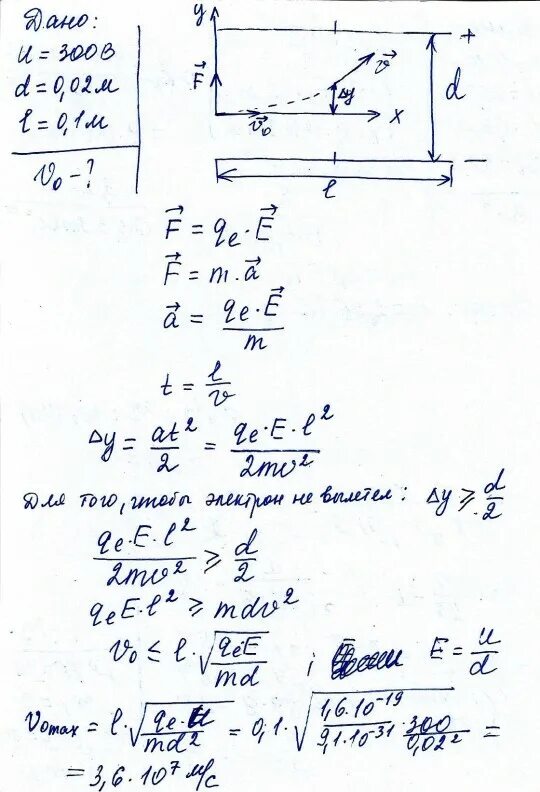 Дано:
U = 300 В
d = 0,02 м
l = 0,1 м
V₀ - ?
y
+
F⃗
v⃗
Δy
d
v⃗₀
x
l
−
F⃗ = qₑ·E⃗
F⃗ = m·a⃗
a⃗ = qₑ·E⃗ / m
t = l / v
Δy = at² / 2 = qₑ·E·l² / 2mv²
Для того, чтобы электрон не вылетел: Δy ⩾ d / 2
qₑ·E·l² / 2mv² ⩾ d / 2
qₑE·l² ⩾ mdv²
V₀ ≤ l·√(qₑE / md) ; E = U / d
V₀max = l·√(qₑ·U / md²) = 0,1·√(1,6·10⁻¹⁹ / 9,1·10⁻³¹ · 300 / 0,02²) =
= 3,6·10⁷ м/с